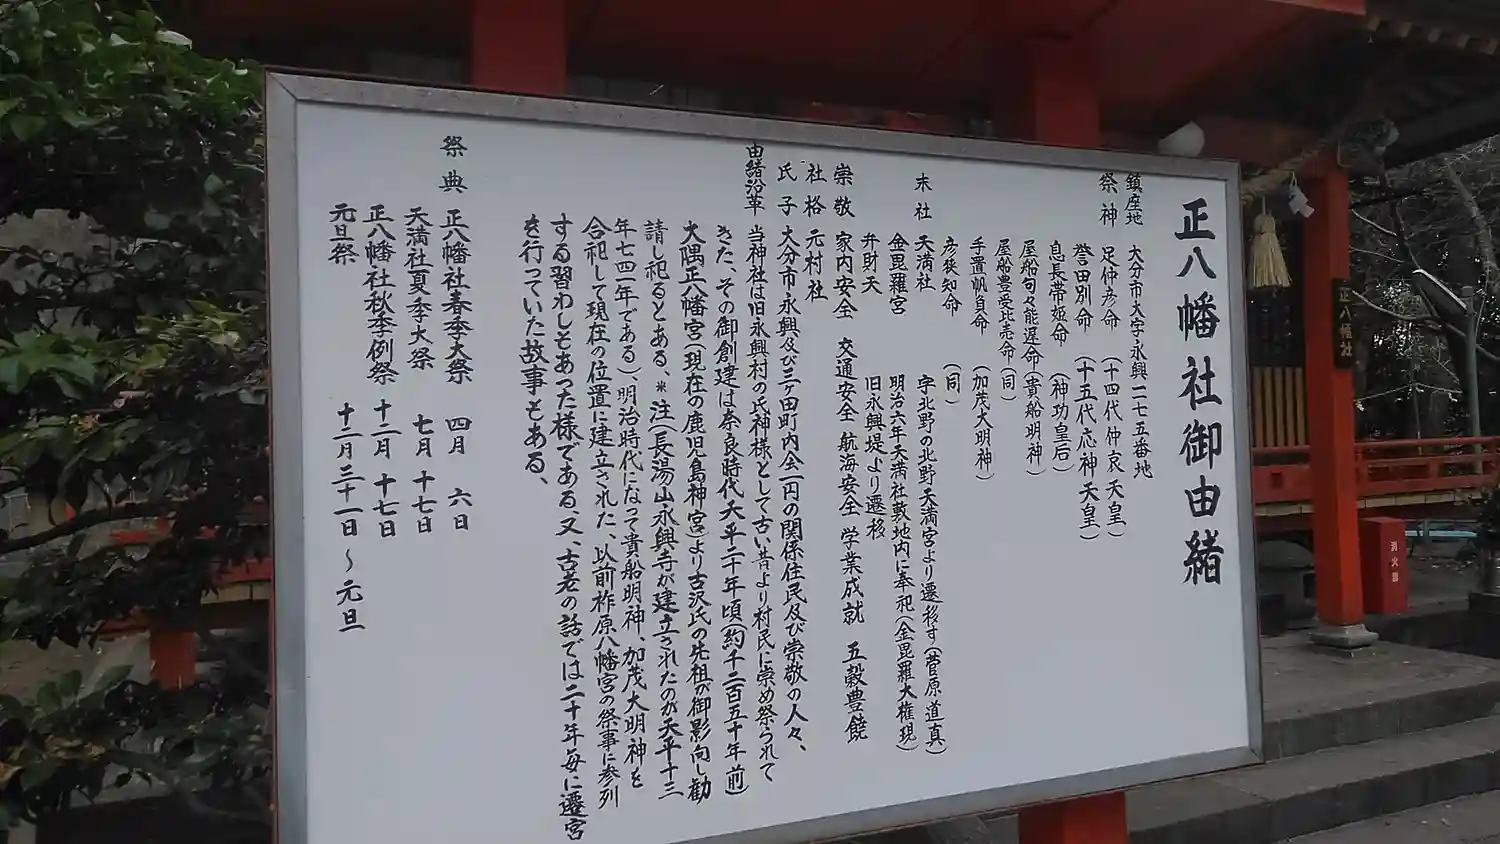 正八幡社御由緒
鎮座地 大分市大字永興二七五番地
祭神 足仲彦命 (十四代仲哀天皇)
誉田別命 (十五代応神天皇)
息長帯姫命 (神功皇后)
屋船句々能遅命 (貴船明神)
屋船豊受比売命 (同)
手置帆負命 (加茂大明神)
彦狭知命 (同)
末社 天満社 字北野の北野天満宮より遷移す(菅原道真)
金毘羅宮 明治六年天満社敷地内に奉祀(金毘羅大権現)
弁財天 旧永興堤より遷移
崇敬 家内安全 交通安全 航海安全 学業成就 五穀豊饒
社格 元村社
氏子 大分市永興及び三ヶ田町内会一円の関係住民及び崇敬の人々、
由緒沿革 当神社は旧永興村の氏神様として古い昔より村民に崇め祭られて
きた、その御創建は奈良時代天平二十年頃(約千二百五十年前)
大隅正八幡宮(現在の鹿児島神宮)より古沢氏の先祖が御影向し勧
請し祀るとある。※注(長湯山永興寺が建立されたのが天平十三
年七四一年である)明治時代になって貴船明神、加茂大明神を
合祀して現在の位置に建立された、以前柞原八幡宮の祭事に参列
する習わしもあった様である、又、古老の話では二十年毎に遷宮
を行っていた故事もある、
祭典 正八幡社春季大祭 四月 六日
天満社夏季大祭 七月 十七日
正八幡社秋季例祭 十二月 十七日
元旦祭 十二月三十一日～元旦
正八幡社
消火器